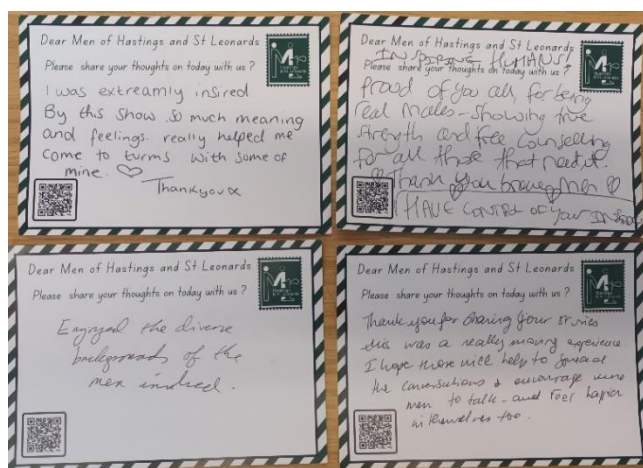 Dear Men of Hastings and St Leonards
Please share your thoughts on today with us ?
I was extreamly insired
By this show. so much meaning
and feelings. really helped me
come to turms with some of
mine. ♡
Thankyou x
Dear Men of Hastings and St Leonards
Please share your thoughts on today with us ?
INSPIRING HUMANS!
proud of you all, for being
real males - showing true
strength and free counselling
for all those that need it.
♡ Thank you brave men ♡
HAVE CONTROL OF YOUR
Dear Men of Hastings and St Leonards
Please share your thoughts on today with us ?
Enjoyed the diverse
backgrounds of the
men involved.
Dear Men of Hastings and St Leonards
Please share your thoughts on today with us ?
Thank you for sharing your stories
this was a really moving experience.
I hope more will help to spread
the conversations & encourage more
men to talk - and feel happier
in themselves too.